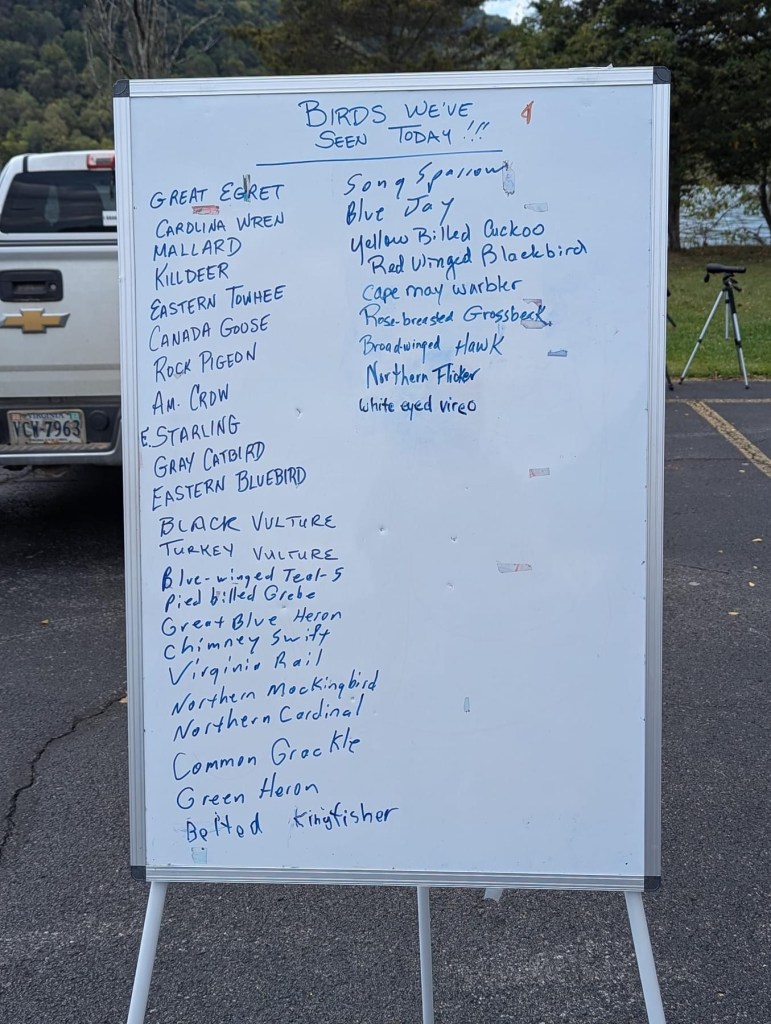 BIRDS WE'VE
SEEN TODAY!!!
GREAT EGRET
CAROLINA WREN
MALLARD
KILLDEER
EASTERN TOWHEE
CANADA GOOSE
ROCK PIGEON
AM. CROW
E. STARLING
GRAY CATBIRD
EASTERN BLUEBIRD
BLACK VULTURE
TURKEY VULTURE
Blue-winged Teal-5
Pied billed Grebe
Great Blue Heron
Chimney Swift
Virginia Rail
Northern Mockingbird
Northern Cardinal
Common Grackle
Green Heron
Belted Kingfisher
Song Sparrow
Blue Jay
Yellow Billed Cuckoo
Red Winged Blackbird
Cape may warbler
Rose-breasted Grossbeak
Broadwinged Hawk
Northern Flicker
White eyed vireo
VCW-7963